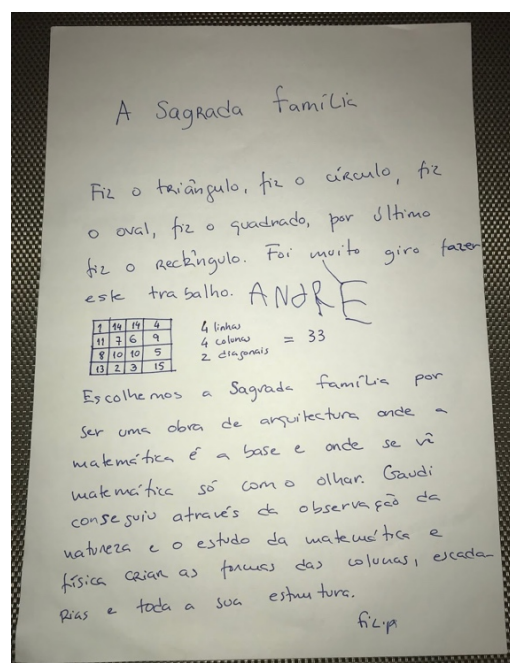 A Sagrada família
Fiz o triângulo, fiz o círculo, fiz
o oval, fiz o quadrado, por último
fiz o rectângulo. Foi muito giro fazer
este trabalho. ANdRÉ
1 14 14 4
11 7 6 9
8 10 10 5
13 2 3 15
4 linhas
4 colunas = 33
2 diagonais
Escolhemos a Sagrada família por
ser uma obra de arquitectura onde a
matemática é a base e onde se vê
matemática só com o olhar. Gaudi
conseguiu através da observação da
natureza e o estudo da matemática e
física criar as formas das colunas, escada
rias e toda a sua estrutura.